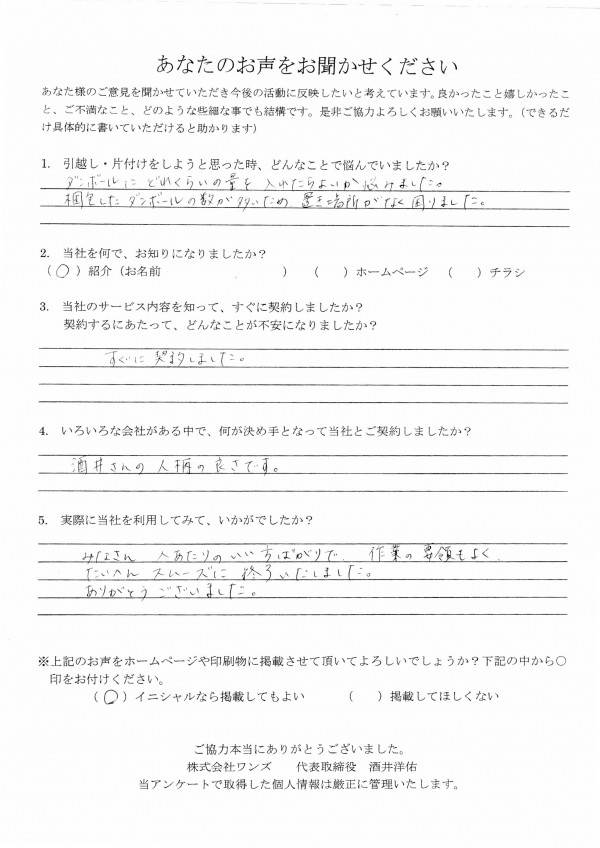 あなたのお声をお聞かせください
あなた様のご意見を聞かせていただき今後の活動に反映したいと考えています。良かったこと嬉しかったこ
と、ご不満なこと、どのような些細な事でも結構です。是非ご協力よろしくお願いいたします。（できるだ
け具体的に書いていただけると助かります）
1. 引越し・片付けをしようと思った時、どんなことで悩んでいましたか？
ダンボールに どれくらいの量を 入れたらよいか悩みました。
梱包した ダンボールの数が多いため 置き場所がなく困りました。
2. 当社を何で、お知りになりましたか？
（○）紹介（お名前　　　　　　　　）　（　）ホームページ　（　）チラシ
3. 当社のサービス内容を知って、すぐに契約しましたか？
契約するにあたって、どんなことが不安になりましたか？
すぐに 契約しました。
4. いろいろな会社がある中で、何が決め手となって当社とご契約しましたか？
酒井さんの 人柄の良さです。
5. 実際に当社を利用してみて、いかがでしたか？
みなさん 人あたりのいい方ばかりで、 作業の要領もよく、
たいへん スムーズに 終了いたしました。
ありがとうございました。
※上記のお声をホームページや印刷物に掲載させて頂いてよろしいでしょうか？下記の中から○
印をお付けください。
（○）イニシャルなら掲載してもよい　　（　）掲載してほしくない
ご協力本当にありがとうございました。
株式会社ワンズ　　代表取締役　酒井洋佑
当アンケートで取得した個人情報は厳正に管理いたします。